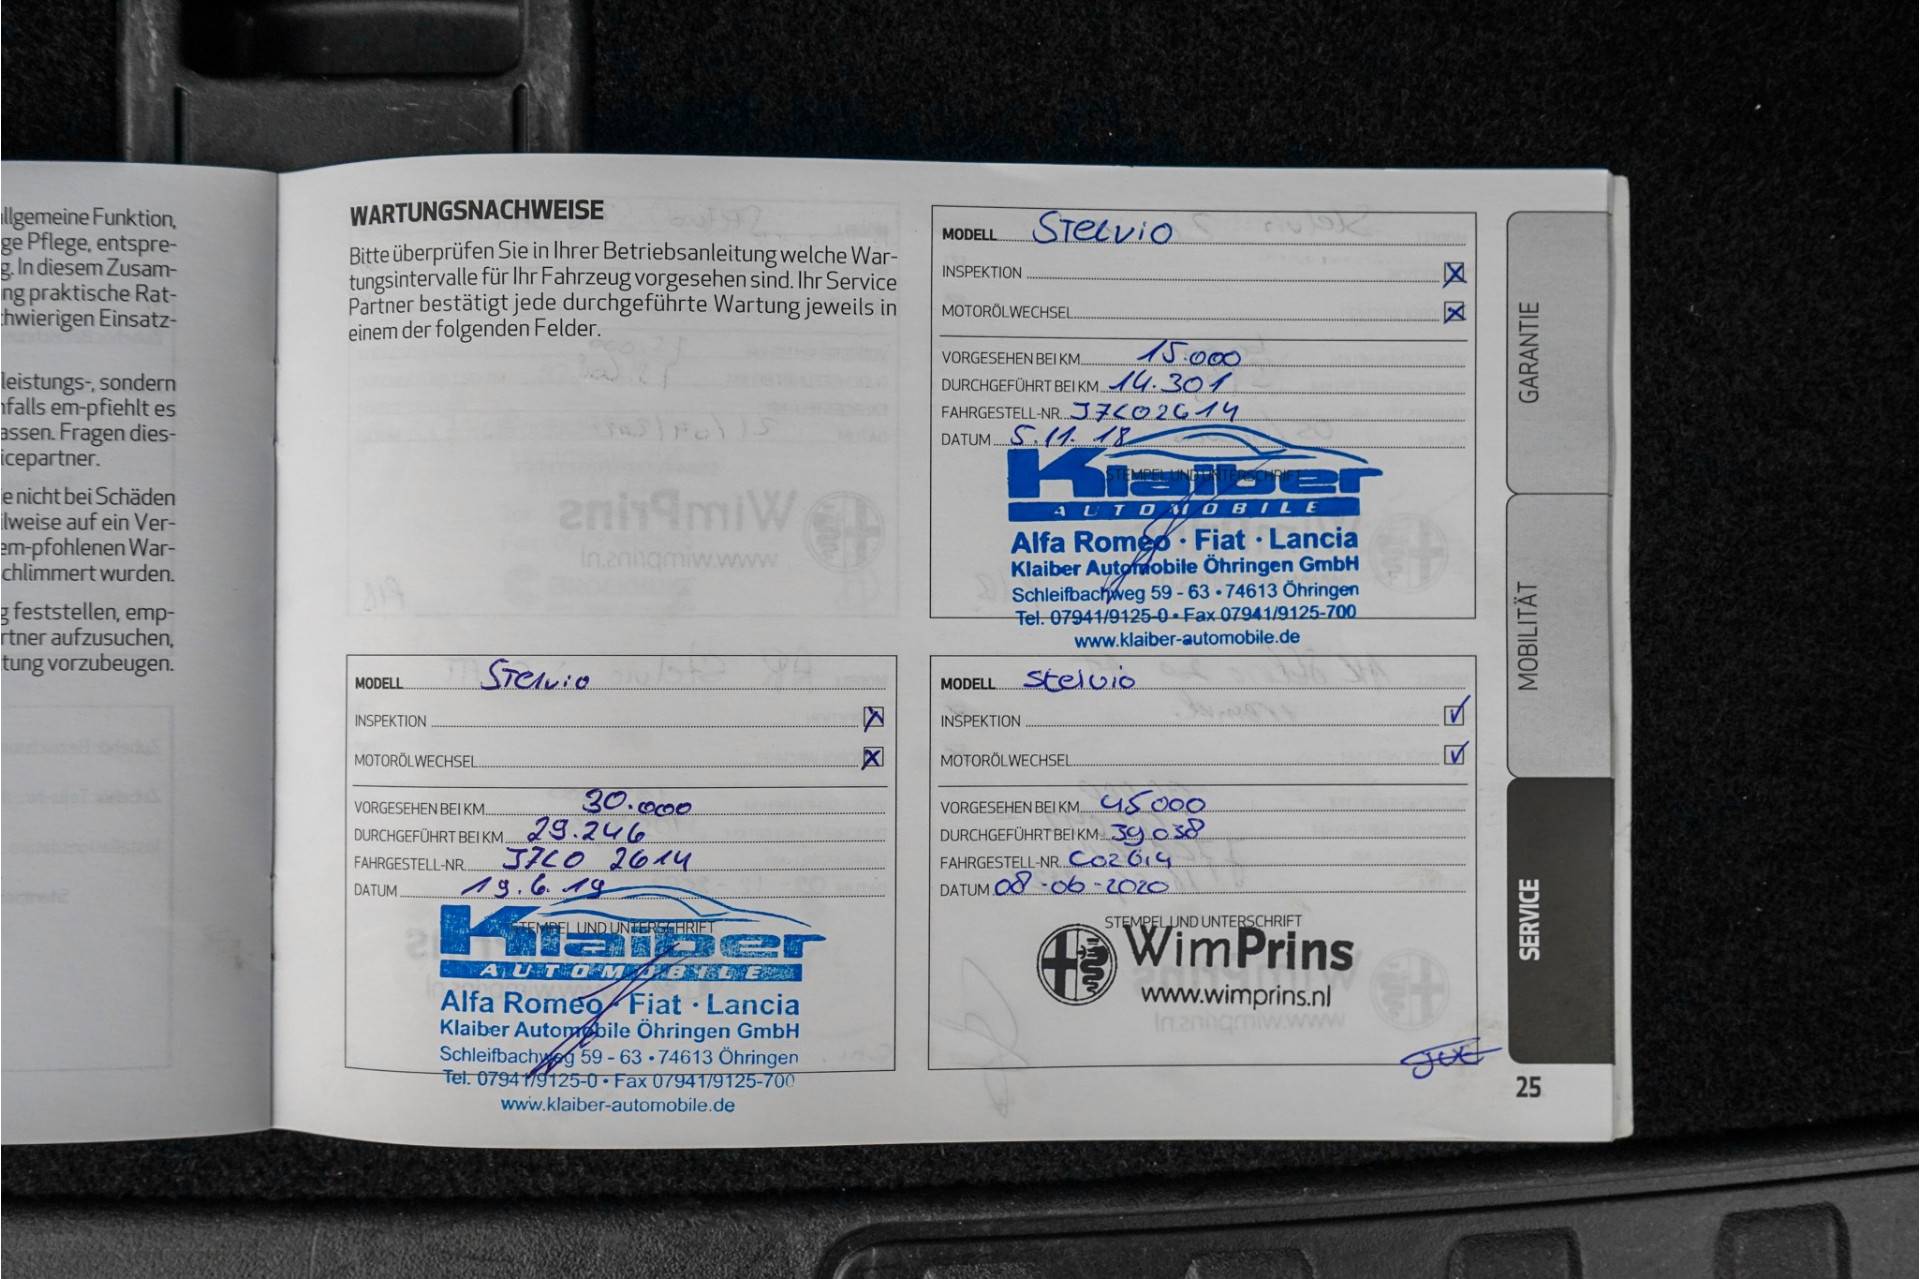 llgemeine Funktion,
ge Pflege, entspre-
g. In diesem Zusam-
ng praktische Rat-
hwierigen Einsatz-
leistungs-, sondern
nfalls em-pfiehlt es
assen. Fragen dies-
icepartner.
e nicht bei Schäden
lweise auf ein Ver-
em-pfohlenen War-
chlimmert wurden.
g feststellen, emp-
rtner aufzusuchen,
tung vorzubeugen.
WARTUNGSNACHWEISE
Bitte überprüfen Sie in Ihrer Betriebsanleitung welche War-
tungsintervalle für Ihr Fahrzeug vorgesehen sind. Ihr Service
Partner bestätigt jede durchgeführte Wartung jeweils in
einem der folgenden Felder.
MODELL Stelvio
INSPEKTION
MOTORÖLWECHSEL
VORGESEHEN BEI KM 15.000
DURCHGEFÜHRT BEI KM 14.301
FAHRGESTELL-NR. J7C02614
DATUM 5.11.18
STEMPEL UND UNTERSCHRIFT
Klaiber
AUTOMOBILE
Alfa Romeo · Fiat · Lancia
Klaiber Automobile Öhringen GmbH
Schleifbachweg 59 - 63 • 74613 Öhringen
Tel. 07941/9125-0 • Fax 07941/9125-700
www.klaiber-automobile.de
MODELL Stelvio
INSPEKTION
MOTORÖLWECHSEL
VORGESEHEN BEI KM 30.000
DURCHGEFÜHRT BEI KM 29.246
FAHRGESTELL-NR. J7C0 2614
DATUM 19.6.19
STEMPEL UND UNTERSCHRIFT
Klaiber
AUTOMOBILE
Alfa Romeo · Fiat · Lancia
Klaiber Automobile Öhringen GmbH
Schleifbachweg 59 - 63 • 74613 Öhringen
Tel. 07941/9125-0 • Fax 07941/9125-700
www.klaiber-automobile.de
MODELL Stelvio
INSPEKTION
MOTORÖLWECHSEL
VORGESEHEN BEI KM 45000
DURCHGEFÜHRT BEI KM 39038
FAHRGESTELL-NR. C02614
DATUM 08-06-2020
STEMPEL UND UNTERSCHRIFT
WimPrins
www.wimprins.nl
GARANTIE
MOBILITÄT
SERVICE
25